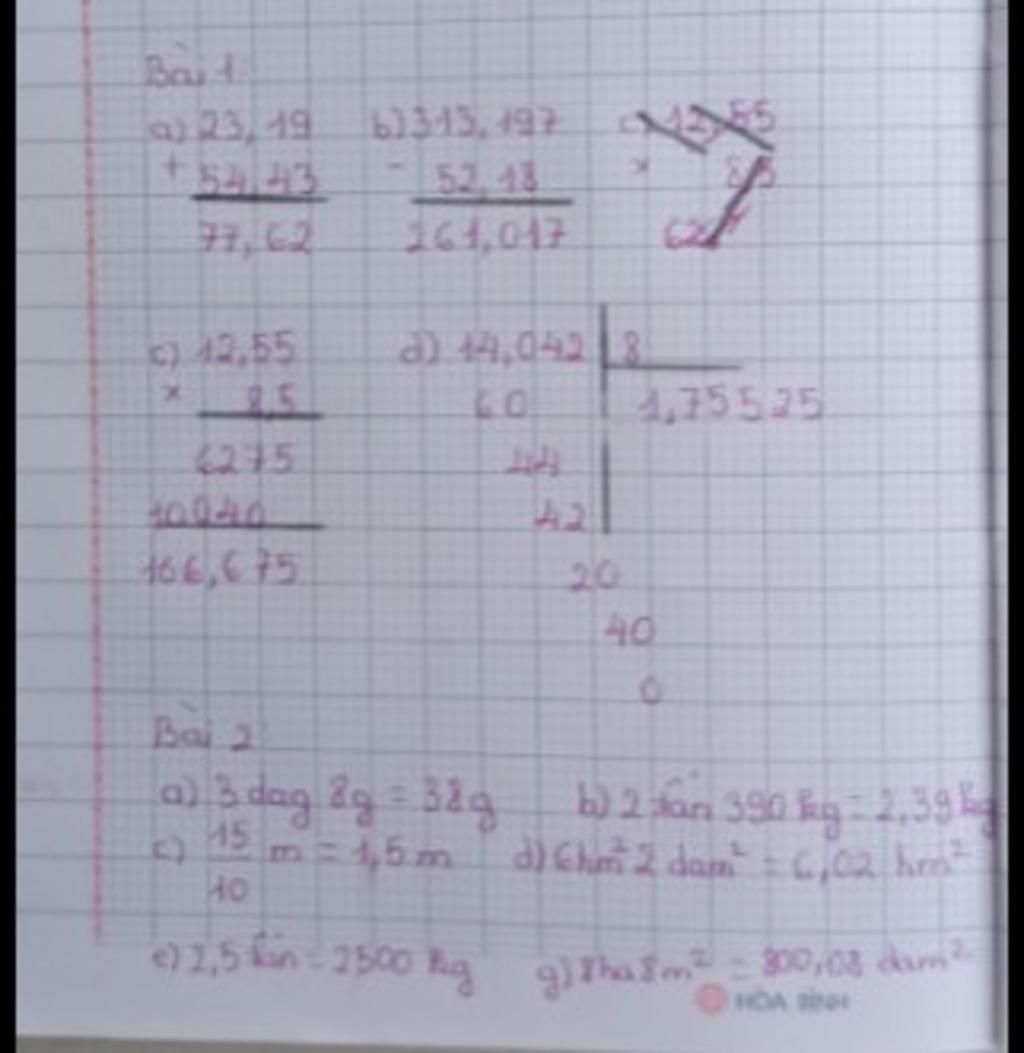 Bài 1:
a) 23,19 b) 313,197 c) 12,55
+ 54,43 - 52,18 × 8,5
77,62 261,017 62
c) 12,55 d) 14,042 8
× 8,5 60 1,75525
6275 44
10040 42
106,675 20
40
0
Bài 2:
a) 3 dag 8g = 38g b) 2 tấn 390 kg = 2,39 kg
c) 15/10 m = 1,5 m d) 6hm² 2 dam² = 6,02 hm²
e) 2,5 tấn = 2500 kg g) 8ha8m² = 800,08 dam²
HÒA BÌNH